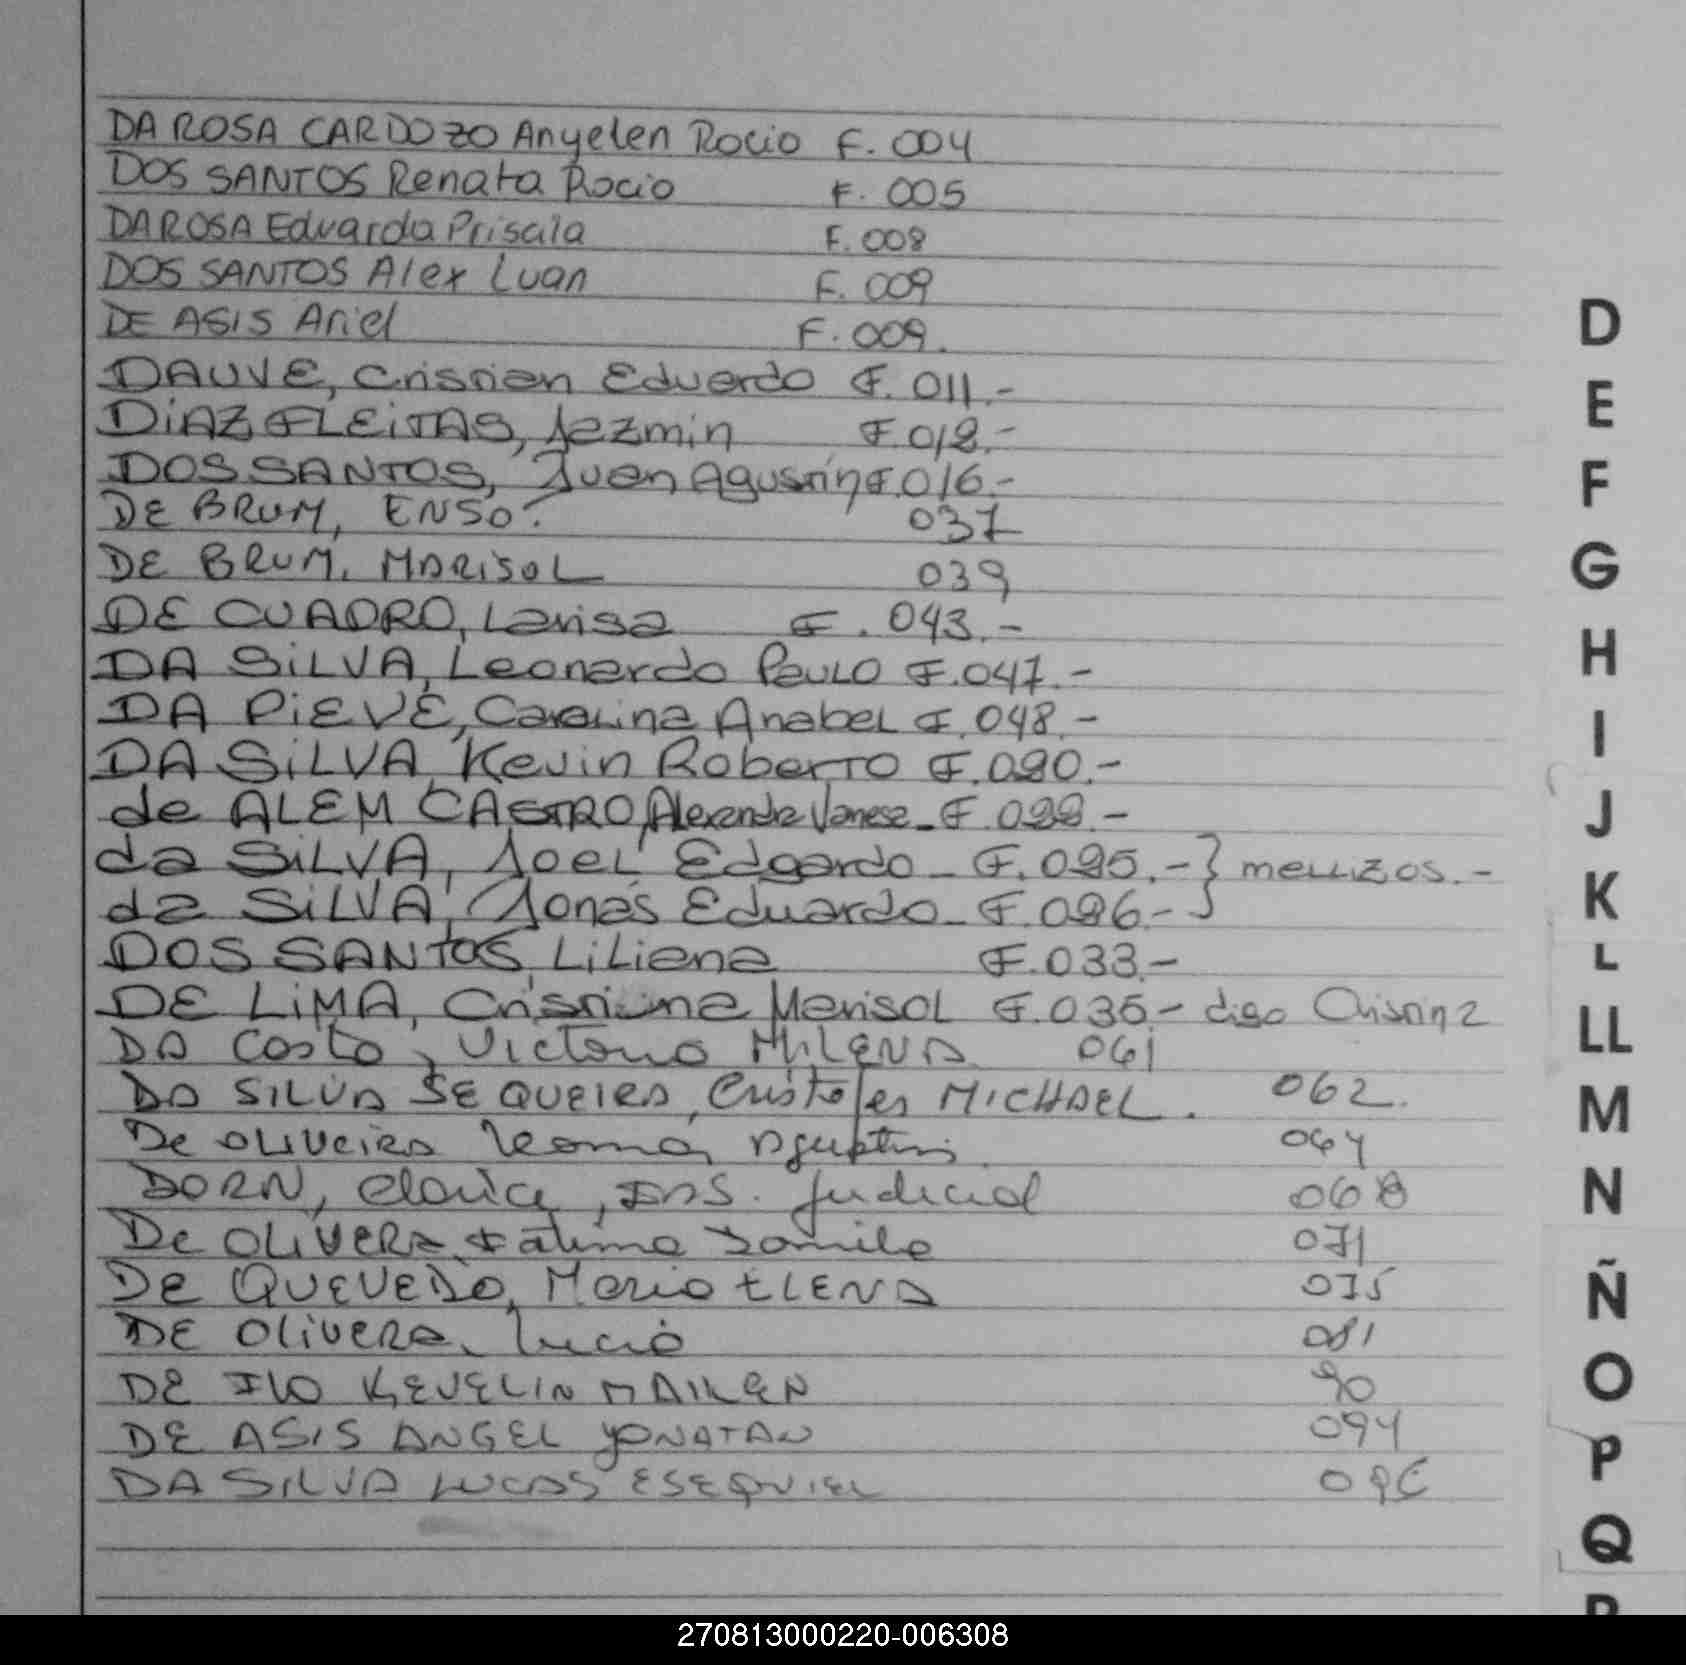 DA ROSA CARDOZO Anyelen Rocio F. 004
DOS SANTOS Renata Rocio F. 005
DA ROSA Eduarda Priscila F. 008
DOS SANTOS Alex Luan F. 009
DE ASIS Ariel F. 009.
DAUVE, Cristian Eduardo F. 011.-
DiAZ FLEiTAS, Jazmin F. 012.-
DOS SANTOS, Juan Agustín F. 016.-
DE BRUM, ENSO. 037
DE BRUM, MARiSOL 039
DE CUADRO, Larisa F. 043.-
DA SiLVA, Leonardo Paulo F. 047.-
DA PiEVE, Carolina Anabel F. 048.-
DA SiLVA, Kevin Roberto F. 020.-
de ALEM CASTRO, Alexandra Vanesa - F. 022.-
da SiLVA, Joel Edgardo - F. 025.- } mellizos.-
da SiLVA, Jonás Eduardo - F. 026.-
DOS SANTOS, Liliana F. 033.-
DE LiMA, Cristina Marisol F. 035.- digo Cristina
DA Costa, Victoria MiLENA 061
DA SILVA SEQUEIRA, Cristofer MICHAEL. 062.
De OLiVeiRA Agustin 064
DORN, Clarisa, Ins. Judicial 068
De OLiVERA Fatima Yamila 071
DE QUEVEDO, Maria ELENA 075
DE OliVERA, Lucia 081
DE KEVELIN MAILEN 90
DE ASIS ANGEL YONATAN 094
DA SILVA LUCAS ESEQUIEL 096
D
E
F
G
H
I
J
K
L
LL
M
N
Ñ
O
P
Q
R
270813000220-006308